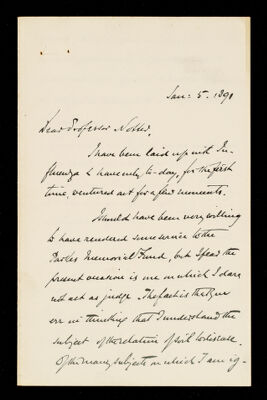 Jan: 5. 1891
Dear Professor Notter,
I have been laid up with In-
fluenza & have only to-day, for the first
time, ventured out for a few moments.
I should have been very willing
to have rendered some service to the
Parkes Memorial Fund, but I fear the
present occasion is one on which I dare
not act as judge. The fact is that you
err in thinking that I understand the
subject of the relation of soil to disease.
Of the many subjects on which I am ig-